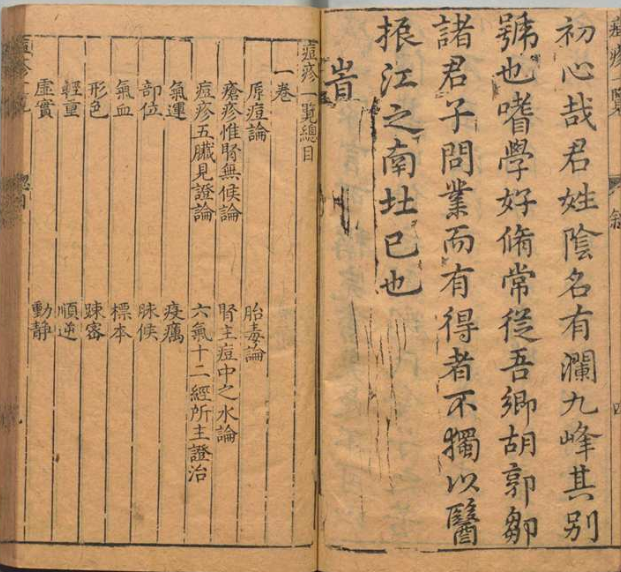 痘疹一覽
敘
初心哉君姓陰名有瀾九峰其别
號也嗜學好脩常從吾鄉胡郭鄒
諸君子問業而有得者不獨以醫
振江之南北已也
旹
痘疹一覽總目
一卷
原痘論 胎毒論
瘡疹惟腎無候論 腎主痘中之水論
痘疹五臟見證論 六氣十二經所主證治
氣運 疫癘
部位 脉候
氣血 標本
形色 踈密
輕重 順逆
虛實 動静